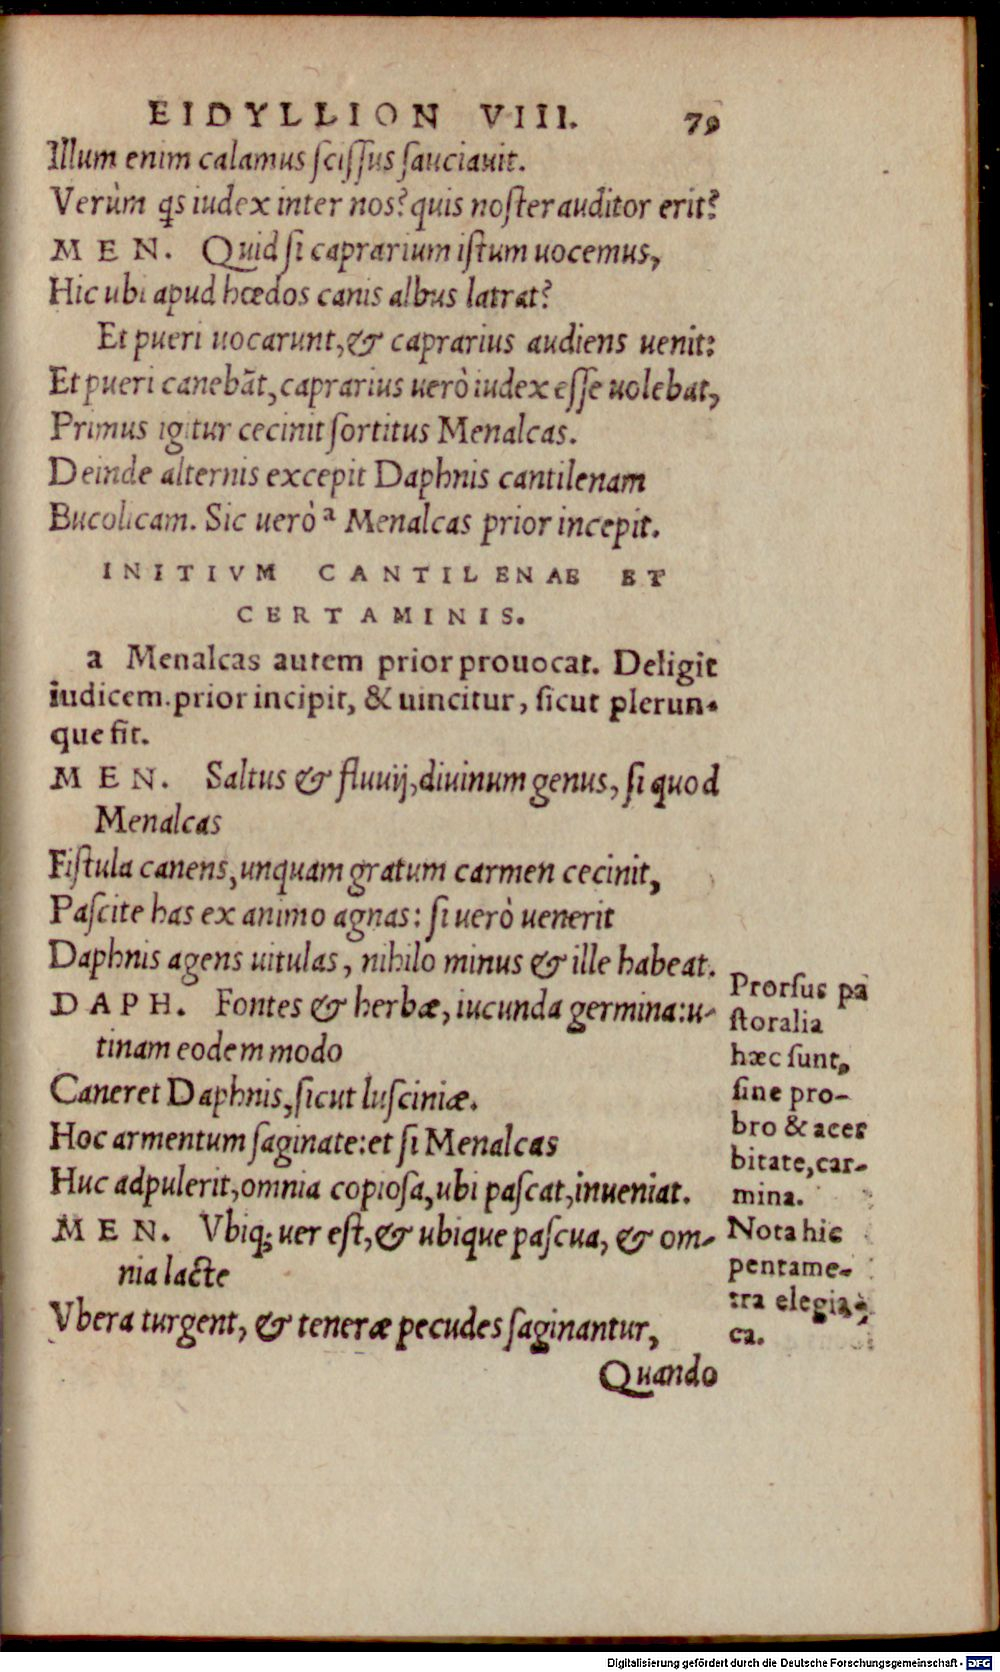 EIDYLLION VIII. 79
Illum enim calamus scissus sauciauit.
Verùm qs iudex inter nos? quis noster auditor erit?
MEN. Quid si caprarium istum uocemus,
Hic ubi apud hœdos canis albus latrat?
Et pueri uocarunt, & caprarius audiens uenit:
Et pueri canebāt, caprarius uerò iudex esse uolebat,
Primus igitur cecinit sortitus Menalcas.
Deinde alternis excepit Daphnis cantilenam
Bucolicam. Sic uerò a Menalcas prior incepit.
INITIVM CANTILENAE ET
CERTAMINIS.
a Menalcas autem prior prouocat. Deligit
iudicem. prior incipit, & uincitur, sicut plerun-
que fit.
MEN. Saltus & fluuij, diuinum genus, si quod
Menalcas
Fistula canens, unquam gratum carmen cecinit,
Pascite has ex animo agnas: si uerò uenerit
Daphnis agens uitulas, nihilo minus & ille habeat.
DAPH. Fontes & herbæ, iucunda germina: u-
tinam eodem modo
Caneret Daphnis, sicut lusciniæ.
Hoc armentum saginate: et si Menalcas
Huc adpulerit, omnia copiosa, ubi pascat, inueniat.
MEN. Vbiq; uer est, & ubique pascua, & om-
nia lacte
Vbera turgent, & teneræ pecudes saginantur,
Quando
Prorsus pa
storalia
hæc sunt,
sine pro-
bro & acer
bitate, car-
mina.
Nota hic
pentame-
tra elegia-
ca.
Digitalisierung gefördert durch die Deutsche Forschungsgemeinschaft - DFG